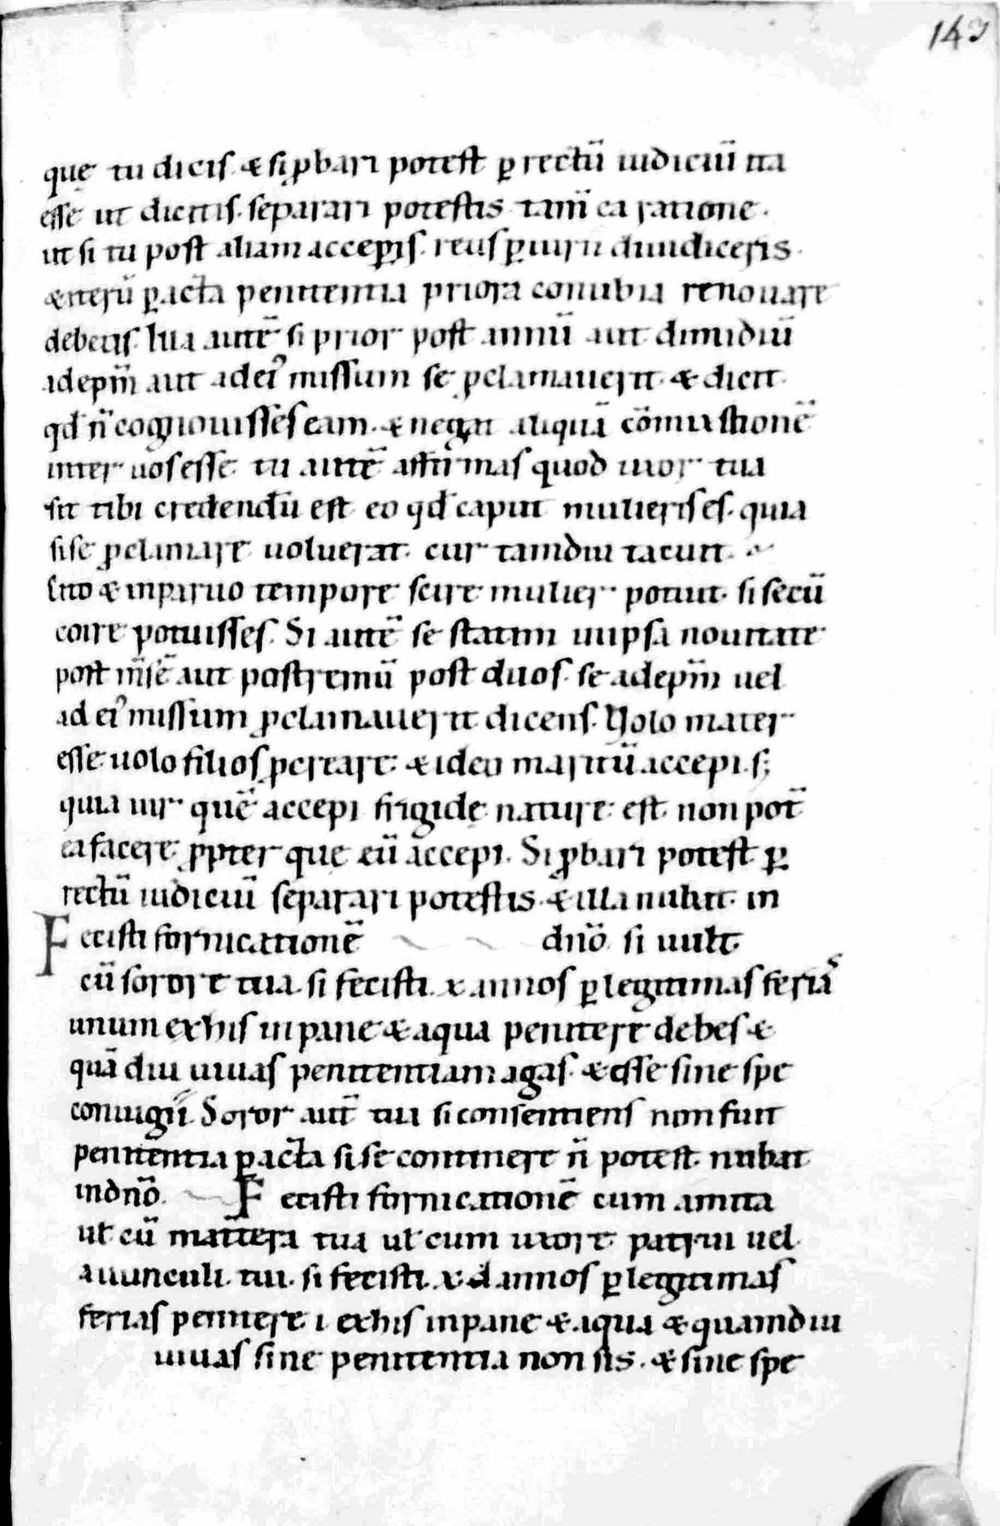 143
que tu dicis. & si ꝓbari potest ꝑ rectū iudiciū ita
esse ut dicitis. separari potestis tam̄ ea ratione.
ut si tu post aliam acceperis. reus ꝑiurii diiudiceris.
& iterū ꝑacta penitentia priora conubia renouare
debetis. Illa autē si prior post annū aut dimidiū
ad epm̄ aut ad ei᾽ missum se ꝓclamauerit. & dicit
qđ n̄ cognouisses eam. & negat aliquā cōmixtionē
inter uos esse. tu autē affirmas quod uxor tua
sit tibi credendū est eo qđ caput mulieris es. quia
si se ꝓclamare uoluerat. cur tamdiu tacuit.
Cito & in paruo tempore scire mulier potuit. si secū
coire potuisses. Si autē se statim in ipsa nouitate
post m̄sē aut postremū post duos. se ad epm̄ uel
ad ei᾽ missum ꝓclamauerit dicens. Uolo mater
esse uolo filios ꝓcreare. & ideo maritū accepi. s;
quia uir quē accepi frigidę naturę est. non pot̄
ea facere ꝓpter que eū accepi. Si ꝓbari potest ꝑ
rectū iudiciū separari potestis. & illa nubat in
Fecisti fornicationē dn̄o si uult.
cū sorore tua. si fecisti. x. annos ꝑ legitimas ferias
unum ex his in pane & aqua penitere debes &
quā diu uiuas penitentiam agas. & esse sine spe
coniugii. Soror aut̄ tua si consentiens non fuit
penitentia ꝑacta si se continere n̄ potest. nubat
in dn̄o. Fecisti fornicationē cum amita
ul cū matītera tua ul cum uxore patrui uel
auunculi tui. si fecisti. x. annos ꝑ legitimas
ferias penitere. i. ex his in pane & aqua & quamdiu
uiuas sine penitentia non sis. & sine spe